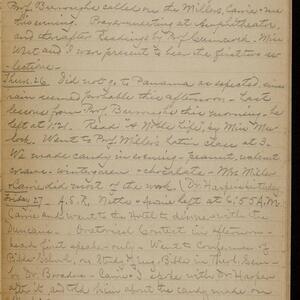 Prof. Burroughs called on the Millers, Carrie & me
this evening. Prayer-meeting at Amphitheater,
and thereafter readings by Prof. Miss
West and I were present to hear the first two se-
lections.
Thurs. 26 Did not go to Panama as expected, since
rain seemed probable this afternoon - Last
lesson from Prof. Burroughs this morning - he
left at Read "A Noble Life", by Miss Mu-
lock. Went to Prof. Miller's Latin class at 3.
We made candy in evening - peanut, walnut
wintergreen & chocolate - Mrs. Miller
& Carrie did most of the work. (Dr. Harper
Friday 27 A.S.R., Nettie & left at 6:55 A.M.
Carrie and I went to the Hotel to dinner with the
Duncans. Oratorical Contest in afternoon -
heard first speaker only - Went to Conference of
Bible School, on Study of Bible in Theol. Sem.
by Dr. Broadus - Carrie & I spoke with Dr. Harper
after it, and told him about the candy made on